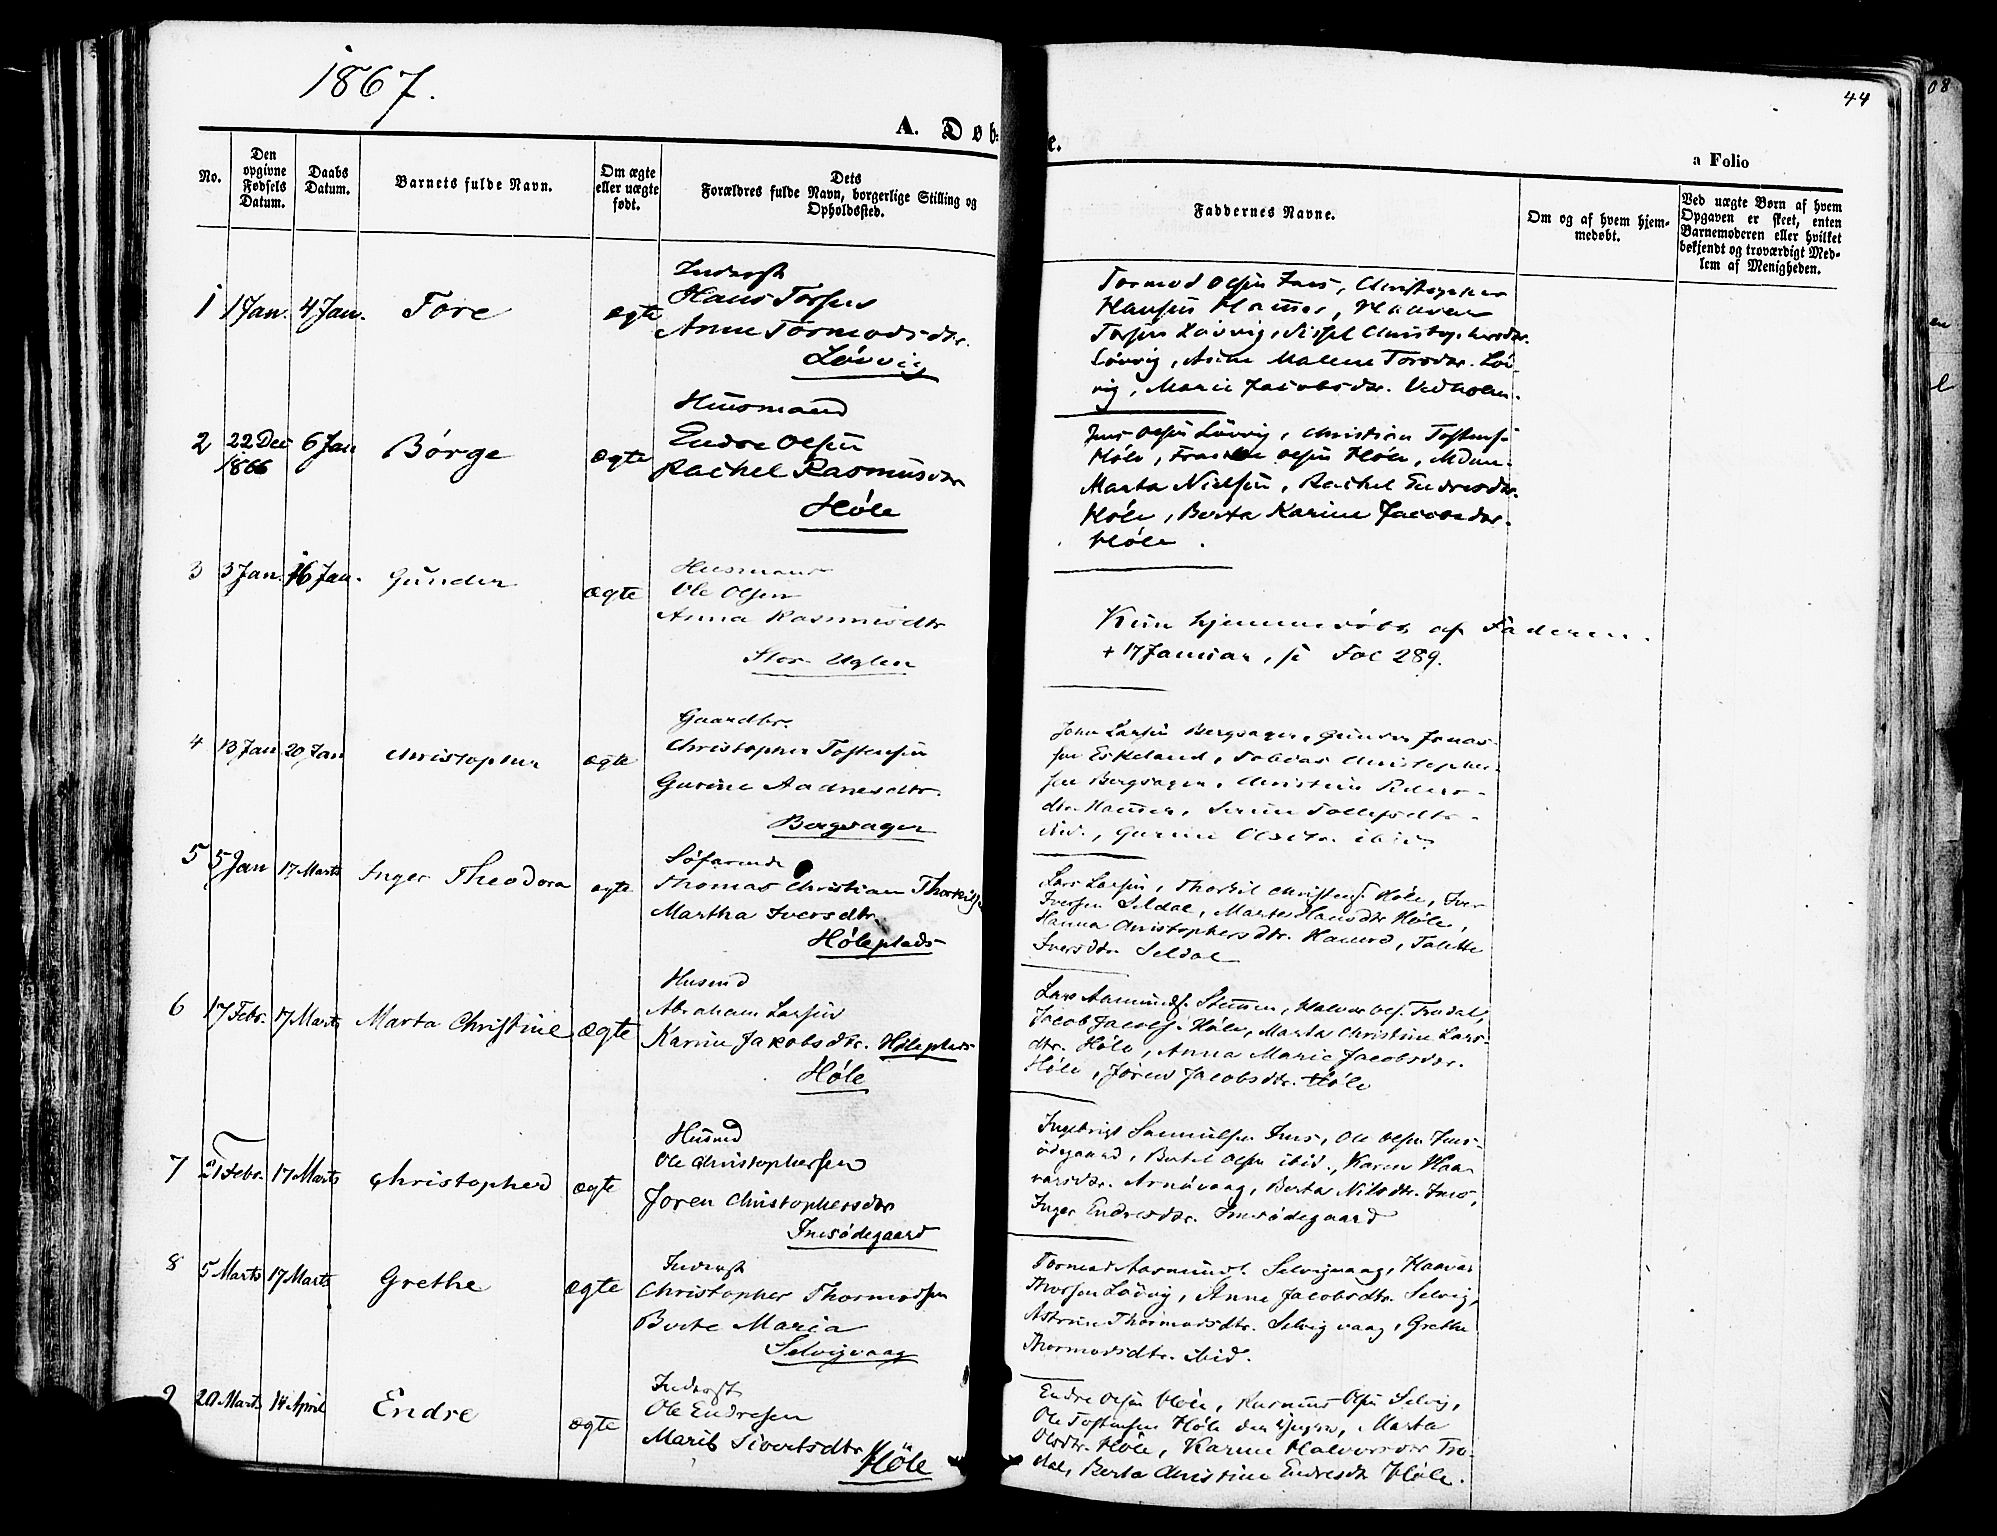 1867.
44
A. Døb-
e.
a Folio
No.
Den opgivne Fødsels Datum.
Daabs Datum.
Barnets fulde Navn.
Om ægte eller uægte født.
Dets Forældres fulde Navn, borgerlige Stilling og Opholdssted.
Faddernes Navne.
Om og af hvem hjem-medøbt.
Ved uægte Børn af hvem Opgaven er skeet, enten Barnemoderen eller hvilket bekjendt og troværdigt Med-lem af Menigheden.
1 1 Jan. 4 Jan. Tore ægte
Inderst
Hans Torsen
Anne Tormodsdtr.
Løvvig
Tormod Olsen Ims, Christopher
Hansen Hammer, Haavar
Torsen Løvvig, Sissel Christophersdtr.
Løvvig, Anne Malene Torsdtr. Løv-
vig, Marie Jacobsdtr. Vedholm.
2 22 Dec 1866 6 Jan Børge ægte
Huusmand
Endre Olsen
Rachel Rasmusdtr
Høle
Jens Olsen Løvvig, Christian Tostens.
Høle, Olsen Høle, Mdm.
Marta Nielsen, Rachel Endresdtr.
Høle, Berta Karine Jacobsdtr.
Høle.
3 3 Jan. 16 Jan. Gunder ægte
Husmand
Ole Olsen
Anna Rasmusdtr
Stor. Uglen
Kun hjemmedøbt af Faderen.
+ 17 Januar, se Fol 289.
4 13 Jan 20 Jan Christopher ægte
Gaardbr.
Christopher Tostensen
Gurine Aadnesdtr.
Bergsagen
John Larsen Bergsagen, Gunder Jonas-
sen Eskeland, Tobias Christopher-
sen Bergsagen, Christine Peders-
dtr. Hammer, Serine Tollefsdtr.
ibid., Gurine Olsdtr. ibid.
5 5 Jan 17 Marts Inger Theodora ægte
Søfarende
Thomas Christian Thorkils.
Martha Iversdtr.
Høleplads
Lars Larsen, Thorkil Christens. Høle, Iver
Iversen Seldal, Marte Hansdtr Høle,
Hanna Christophersdtr. Hammer, Talette
Iversdtr. Seldal
6 17 Febr. 17 Marts Marta Christine ægte
Husmd
Abraham Larsen
Karine Jakobsdtr. Høleplads
Høle
Lars Aamunds. Høle, Marta Christine Lars-
dtr. Høle, Anna Marie Jacobsdtr.
Høle, Jøren Jacobsdtr. Høle
7 21 Febr. 17 Marts Christopher ægte
Husmd
Ole Christophersen
Jøren Christophersdtr
Imsødegaard
Ingebrigt Samuelsen Ims, Ole Olsen Ims-
ødegaard, Bertel Olsen ibid., Karen Haa-
varsdtr. Arnavaag, Berta Nilsdtr. Ims,
Inger Endresdtr. Imsødegaard
8 5 Marts 17 Marts Grethe ægte
Inderst
Christopher Thormodsen
Berte Maria
Selvigvaag
Tormod Aasmunds. Selvigvaag, Haavar
Thorsen Løvvig, Anne Jacobsdtr. Selvig,
Thormodsdtr. Selvigvaag, Grethe
Thormodsdtr. ibid.
9 20 Marts 14 April Endre ægte
Inderst
Ole Endresen
Marit Sivertsdtr
Høle
Endre Olsen Høle, Rasmus Olsen Selvig,
Ole Tostensen Høle den Yngre, Marta
Olsdtr. Høle, Karine Halvorsdtr Tro-
dal, Berta Christine Endresdtr Høle.